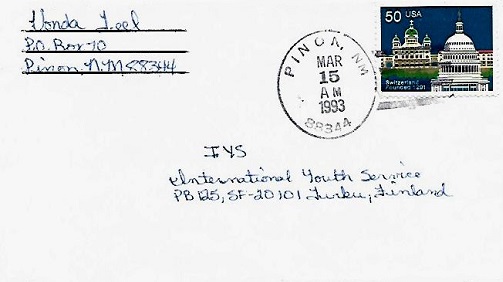 Vonda Teel
P.O. Box 70
Pinon, NM 88344
PINON, NM
MAR
15
AM
1993
88344
50 USA
Switzerland
Founded 1291
IYS
International Youth Service
PB 125, SF-20101 Turku, Finland